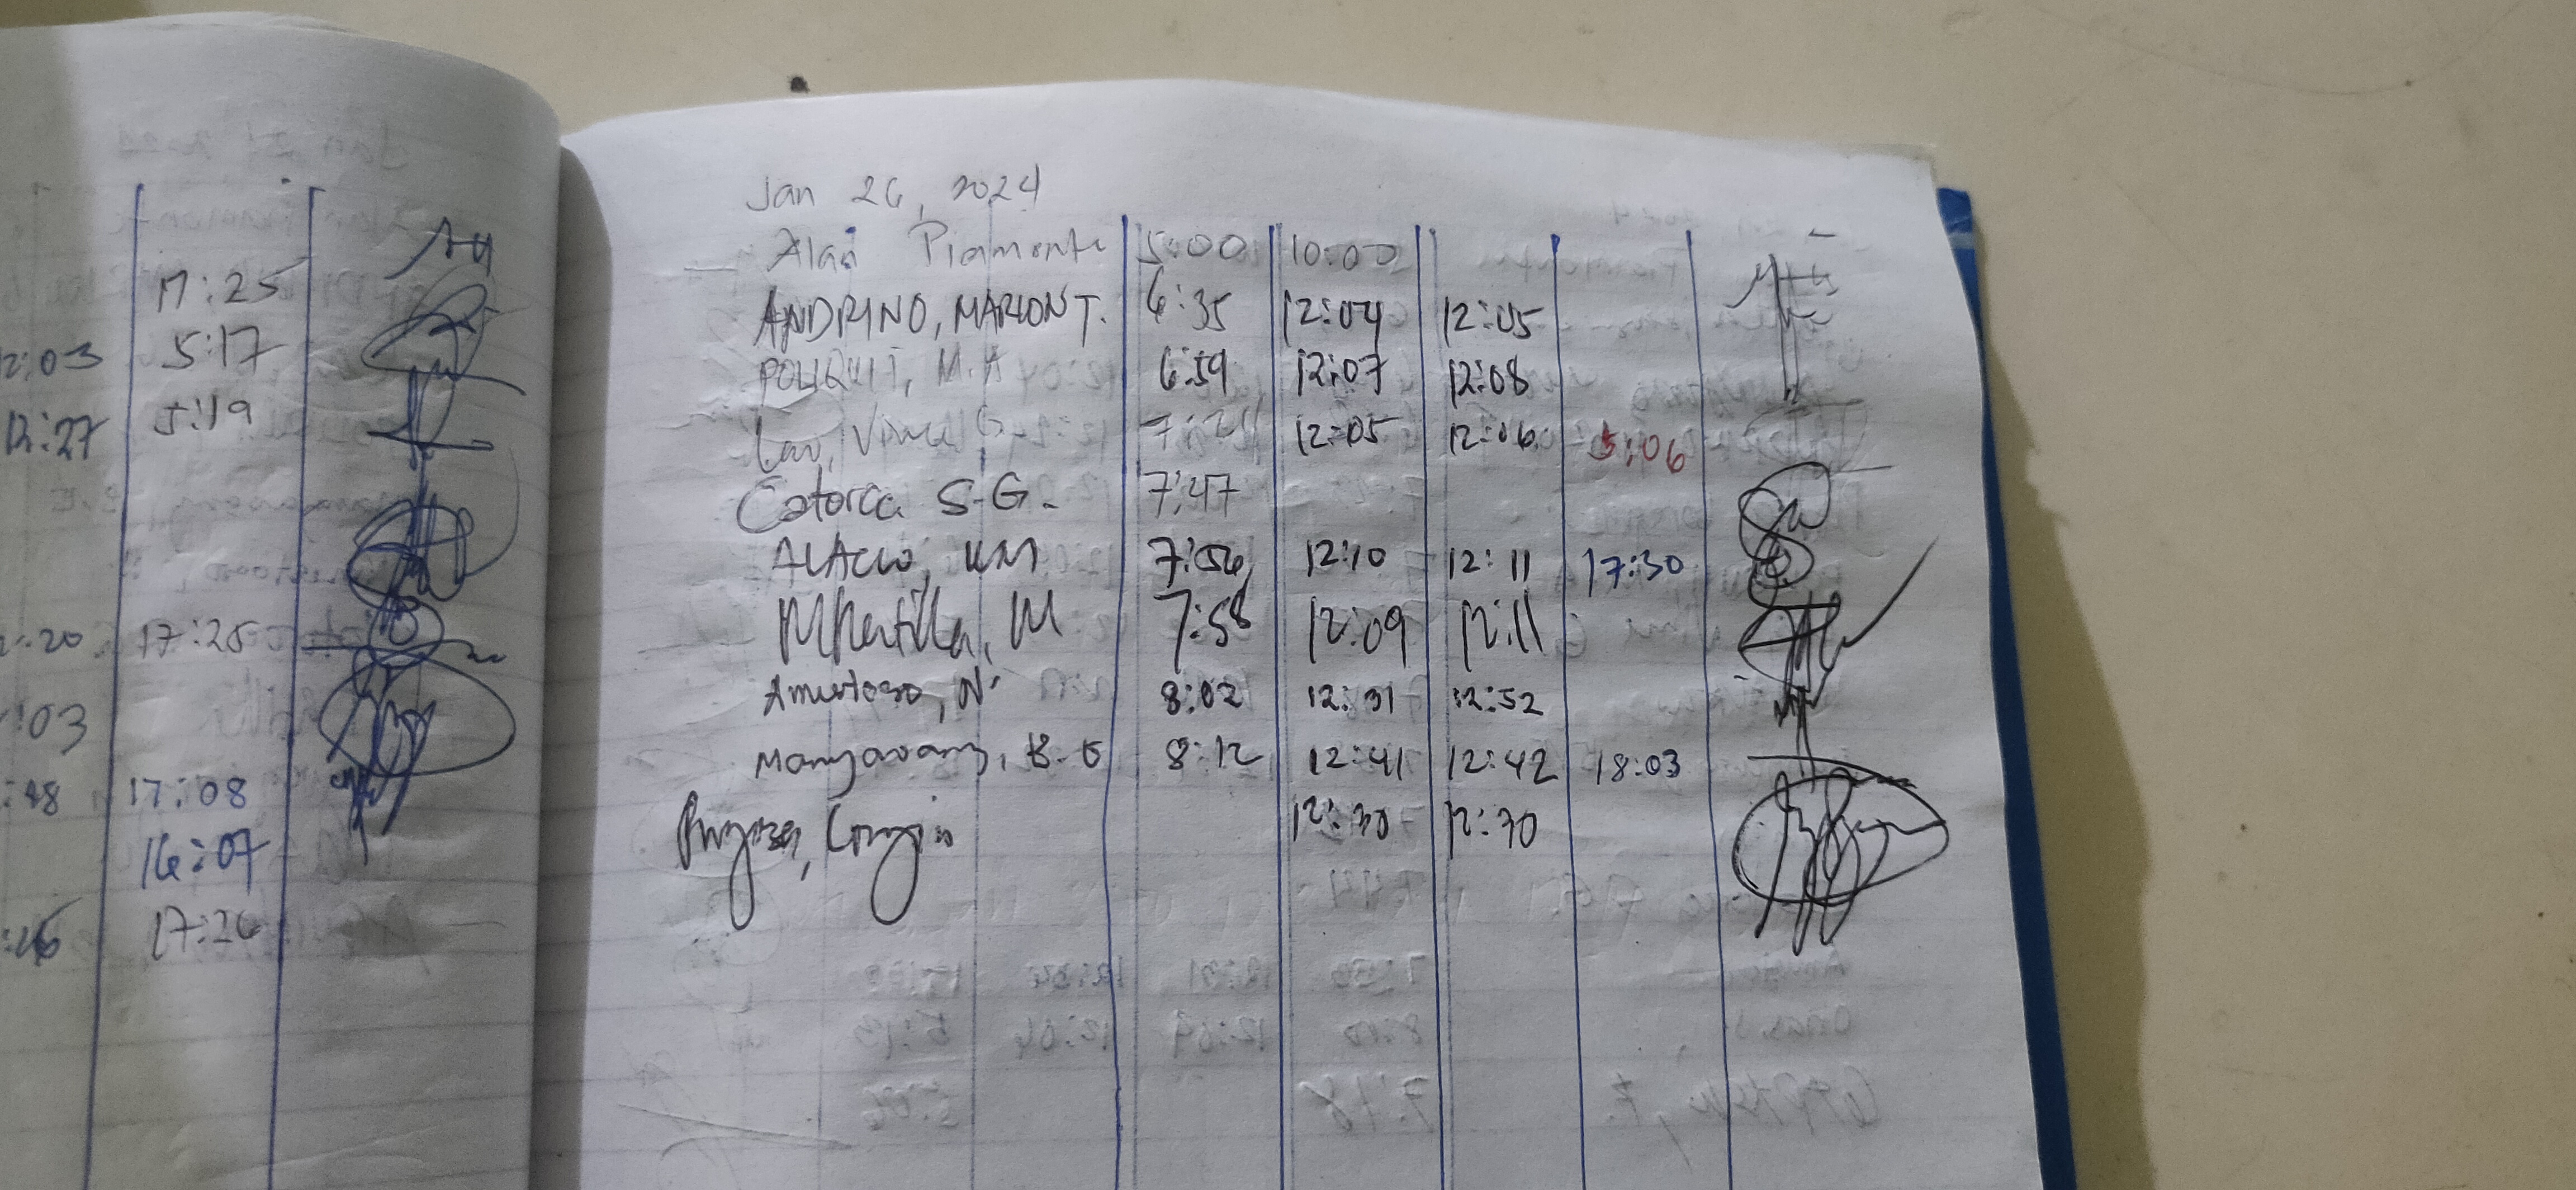 17:25
12:03 5:17
12:27 5:19
:20 17:25
:03
:48 17:08
16:07
17:26
Jan 26, 2024
Alan Piamonte 5:00 10:00
ANDRINO, MARION T. 6:35 12:04 12:05
POLIQUIT, M.A 6:59 12:07 12:08
Lao, Vince G 12:05 12:06 5:06
Catorce S.G. 7:47
ALACIO, KM 7:56 12:10 12:11 17:30
M 7:58 12:09 12:11
Amistoso, N 8:02 12:31 12:52
8:12 12:41 12:42 18:03
12:30 12:30